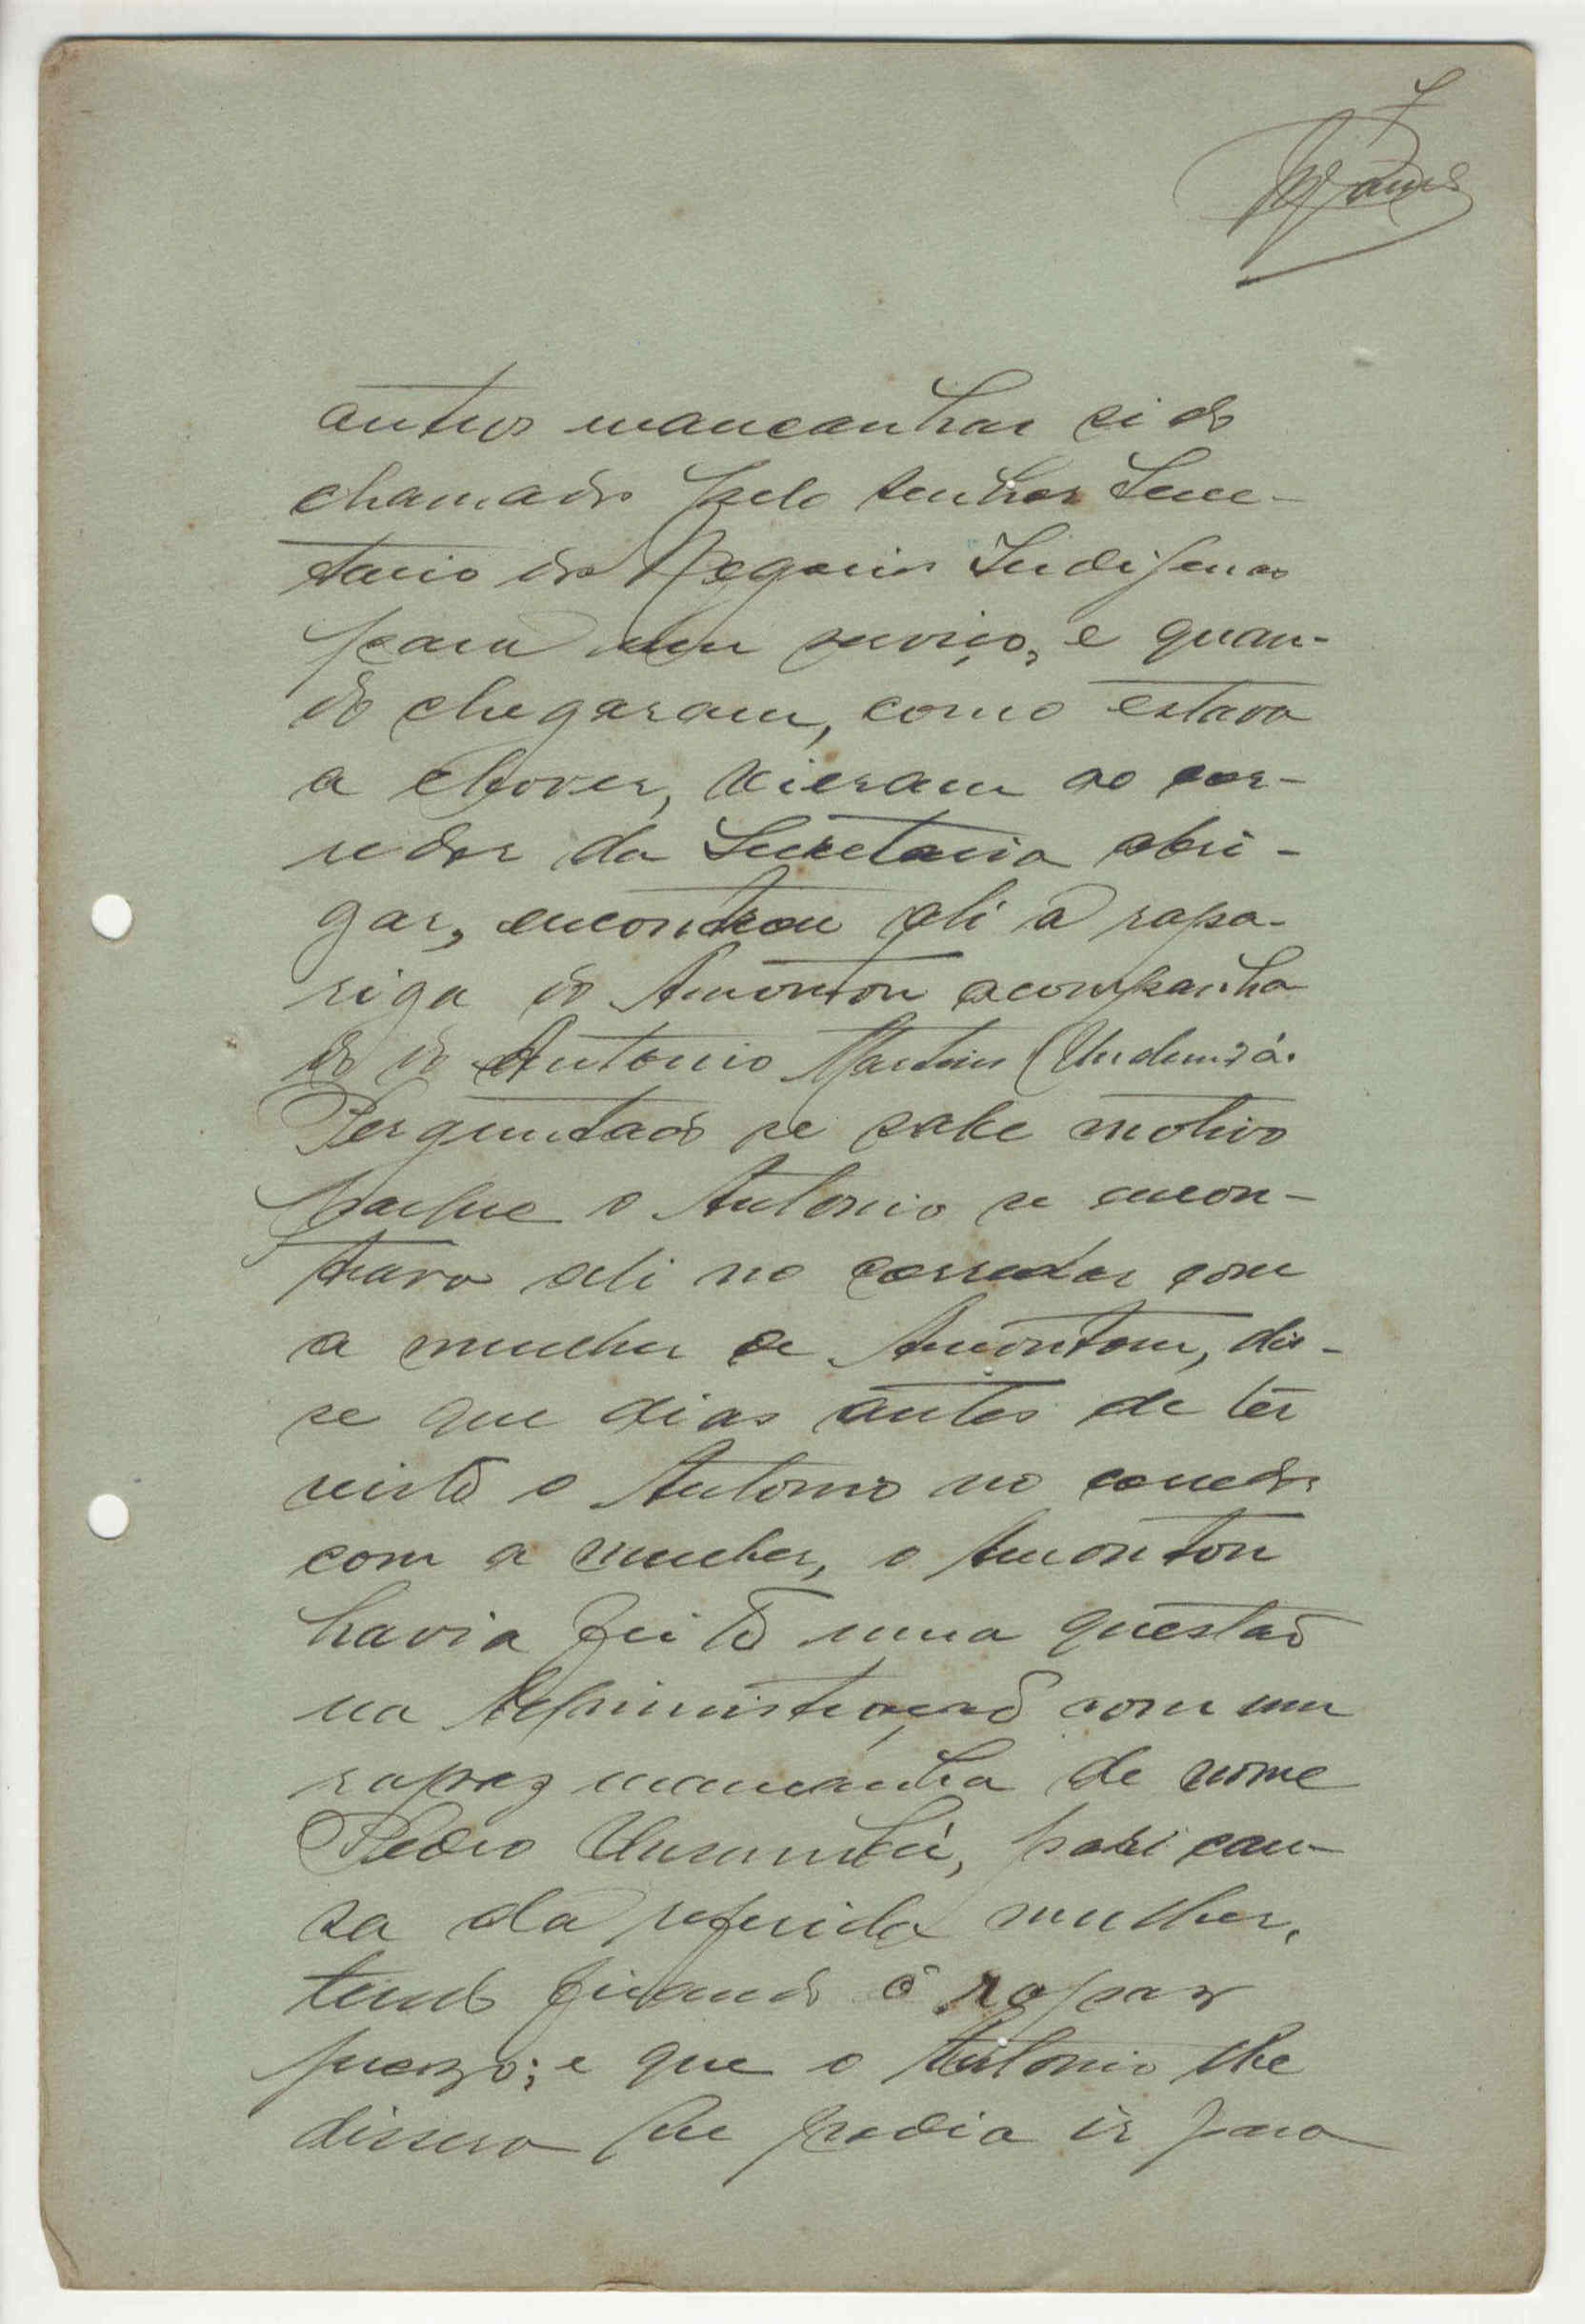 7
outros mancanhas sido
chamado pelo senhor Secre-
tario dos Negocios Indigenas
para um serviço, e quan-
do chegaram, como estava
a chover, vieram ao cor-
redor da Secretaria abri-
gar, encontrou ali a rapa-
riga do Amonton acompanha
do do Antonio Martins
Perguntado se sabe motivo
porque o Antonio se encon-
trava ali no corredor com
a mulher de Amonton, dis-
se que dias antes de ter
visto o Antonio no corredor
com a mulher, o Amonton
havia feito uma questaõ
na Administraçaõ com um
rapaz mancanha de nome
Pedro por cau-
sa da referida mulher,
tendo ficando o rapaz
prezo; e que o Antonio lhe
dissera que podia ir para